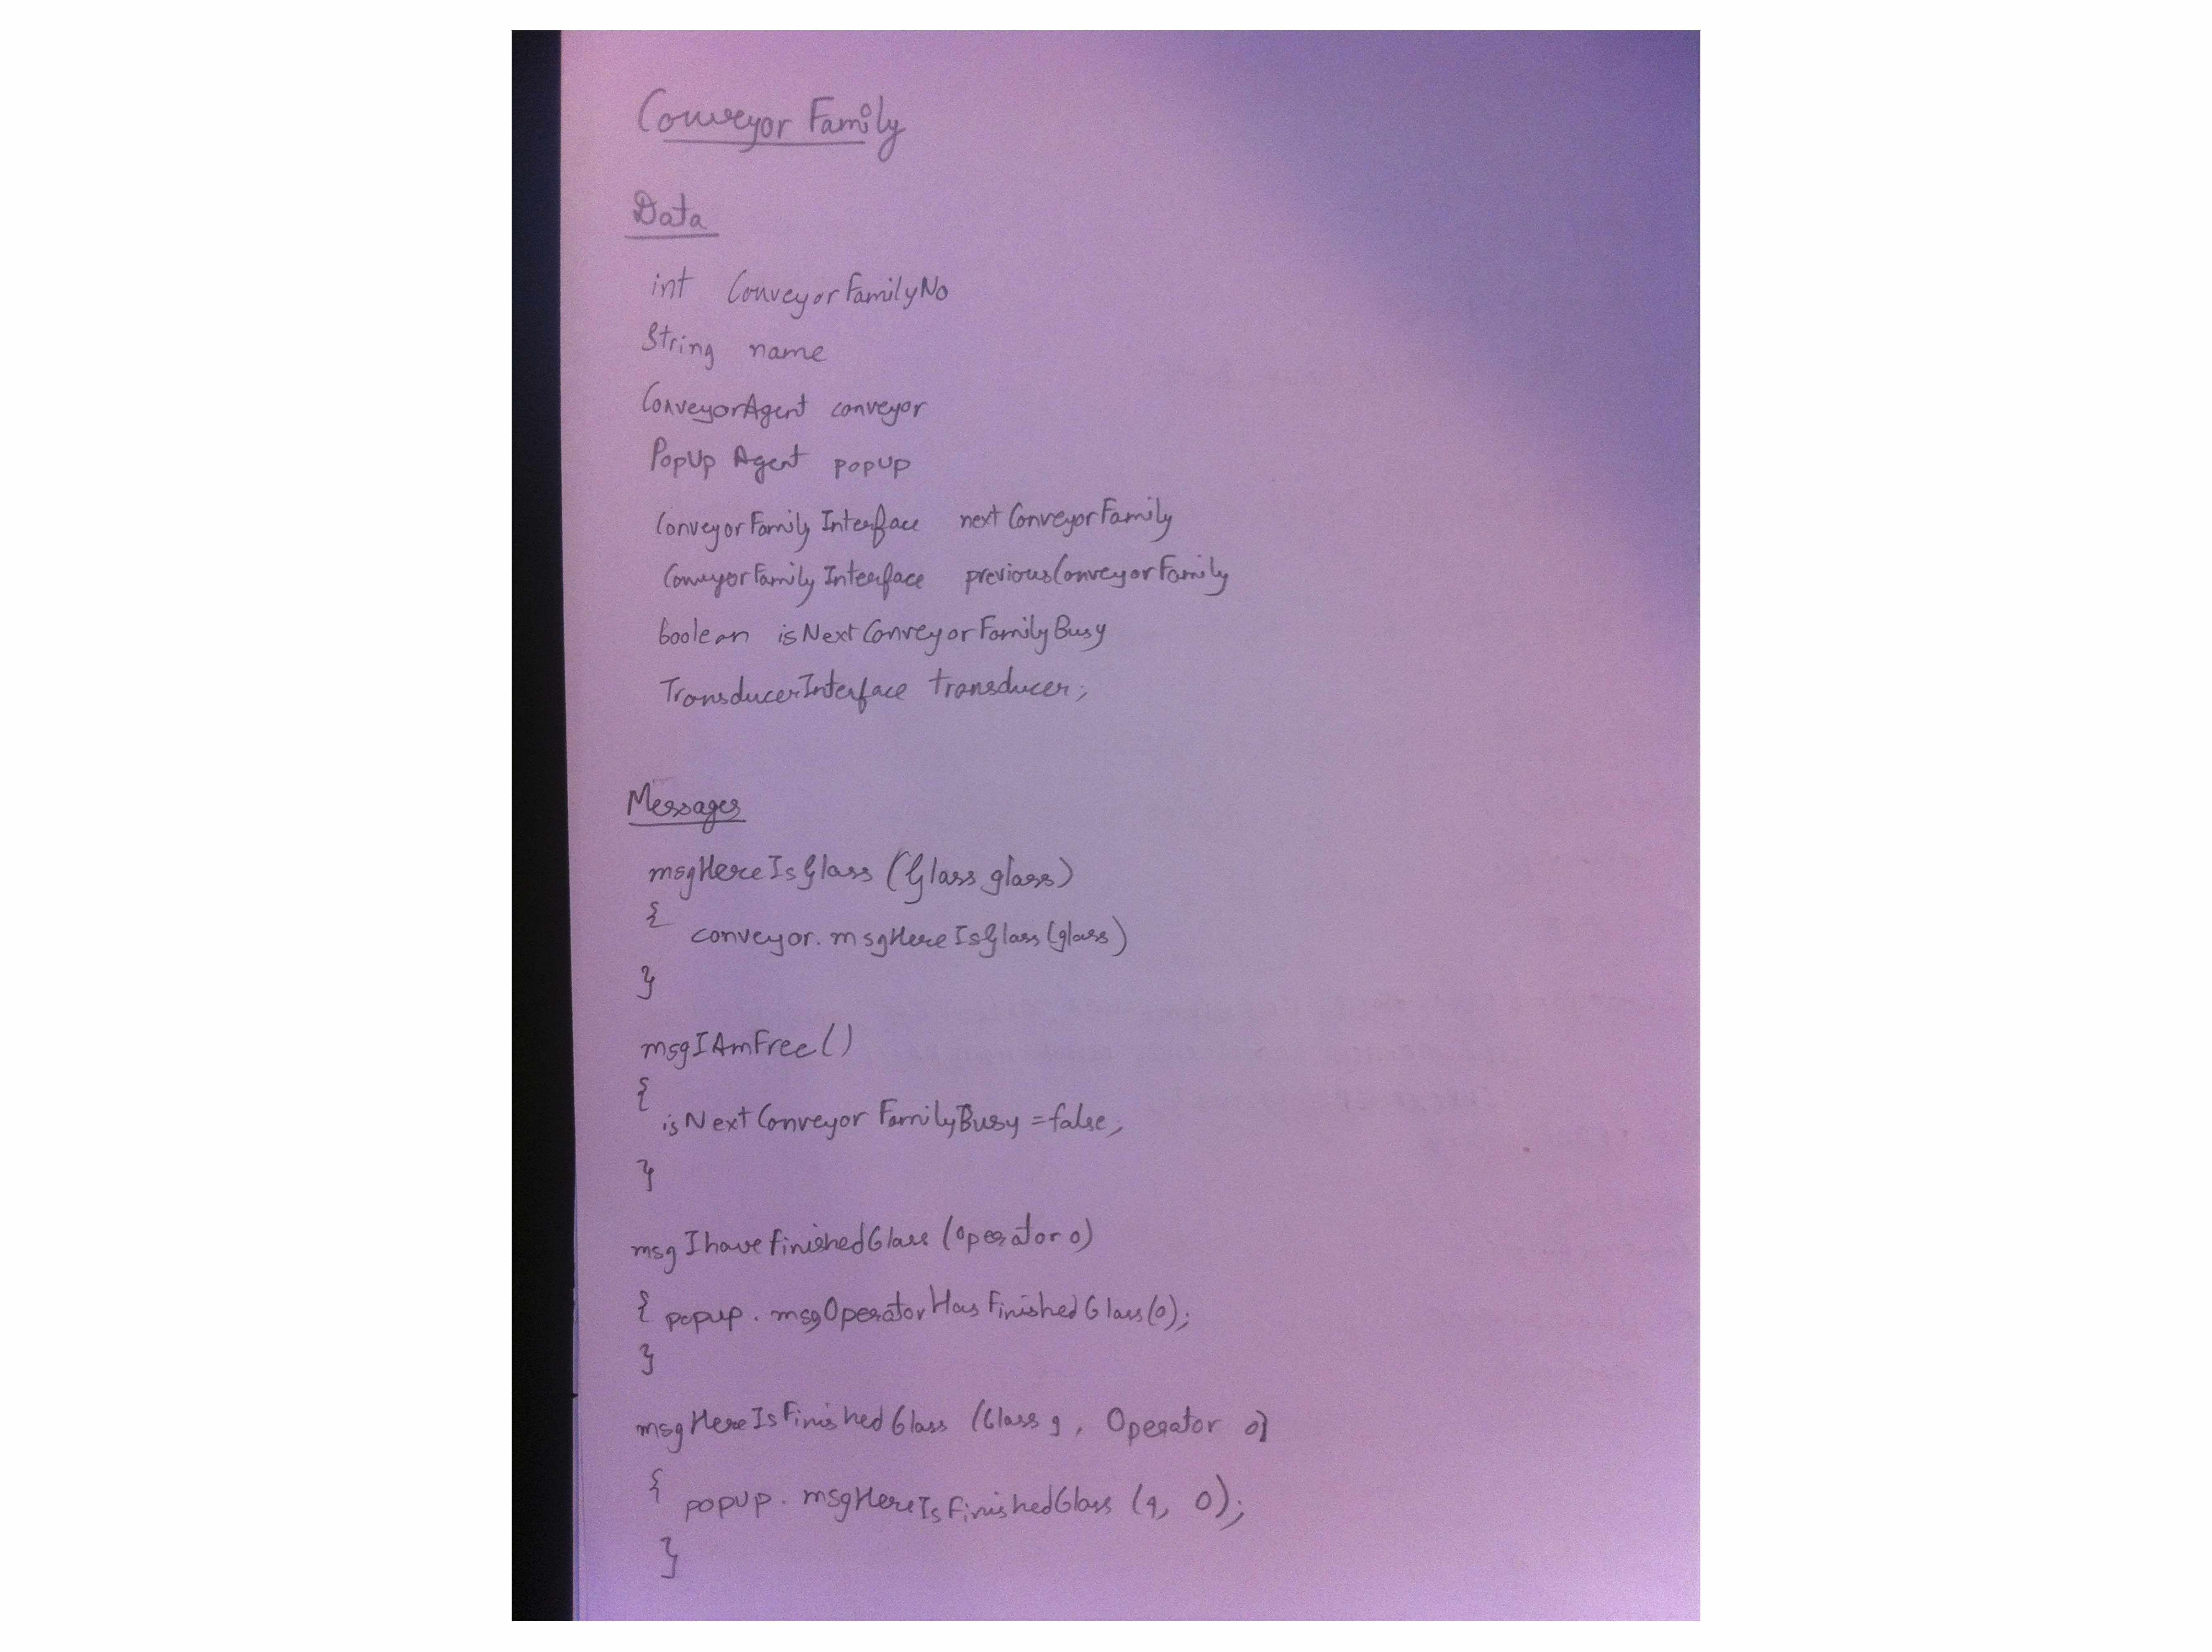 Conveyor Family
Data
int ConveyorFamilyNo
String name
ConveyorAgent conveyor
PopUp Agent popup
ConveyorFamily Interface next ConveyorFamily
ConveyorFamily Interface previousConveyorFamily
boolean isNextConveyorFamilyBusy
TransducerInterface transducer;
Messages
msgHereIsGlass (Glass glass)
{
conveyor. msgHereIsGlass (glass)
}
msgIAmFree()
{
isNextConveyor FamilyBusy = false;
}
msg IhavefinishedGlass (Operator o)
{ popup. msgOperatorHasFinishedGlass(o);
}
msgHereIsFinishedGlass (Glass g, Operator o)
{ popup. msgHereIsFinishedGlass (g, o);
}